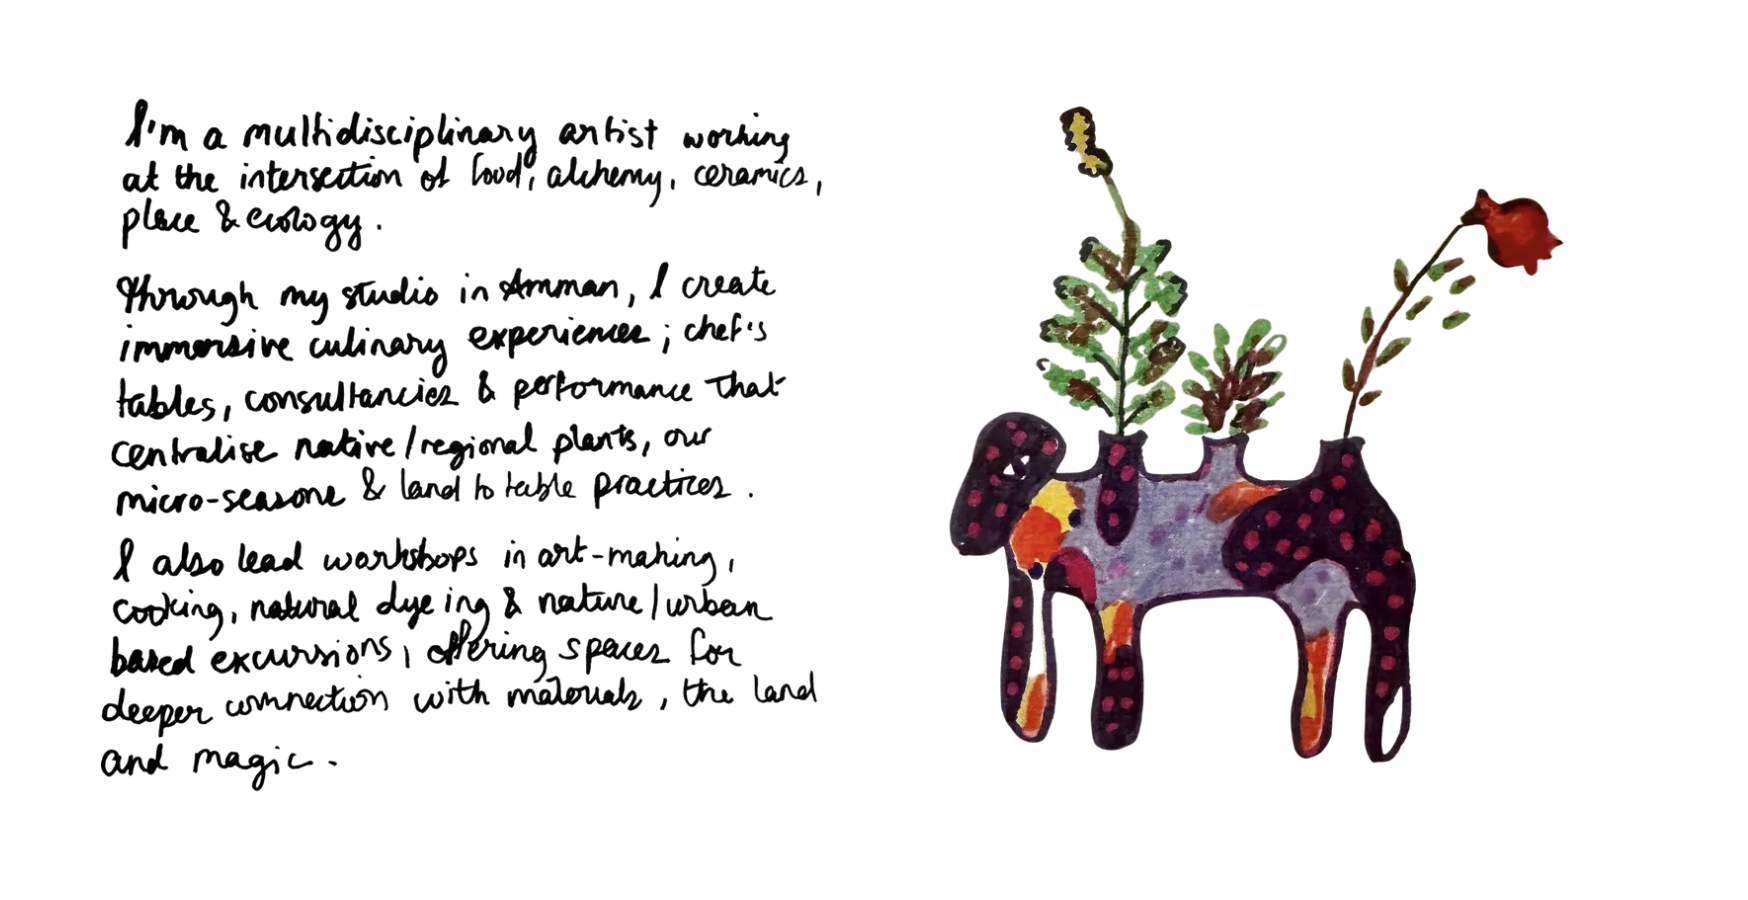 I'm a multidisciplinary artist working
at the intersection of food, alchemy, ceramics,
place & ecology.
Through my studio in Amman, I create
immersive culinary experiences; chef's
tables, consultancies & performance that
centralise native/regional plants, our
micro-seasons & land to table practices.
I also lead workshops in art-making,
cooking, natural dyeing & nature/urban
based excursions, offering spaces for
deeper connection with materials, the land
and magic.